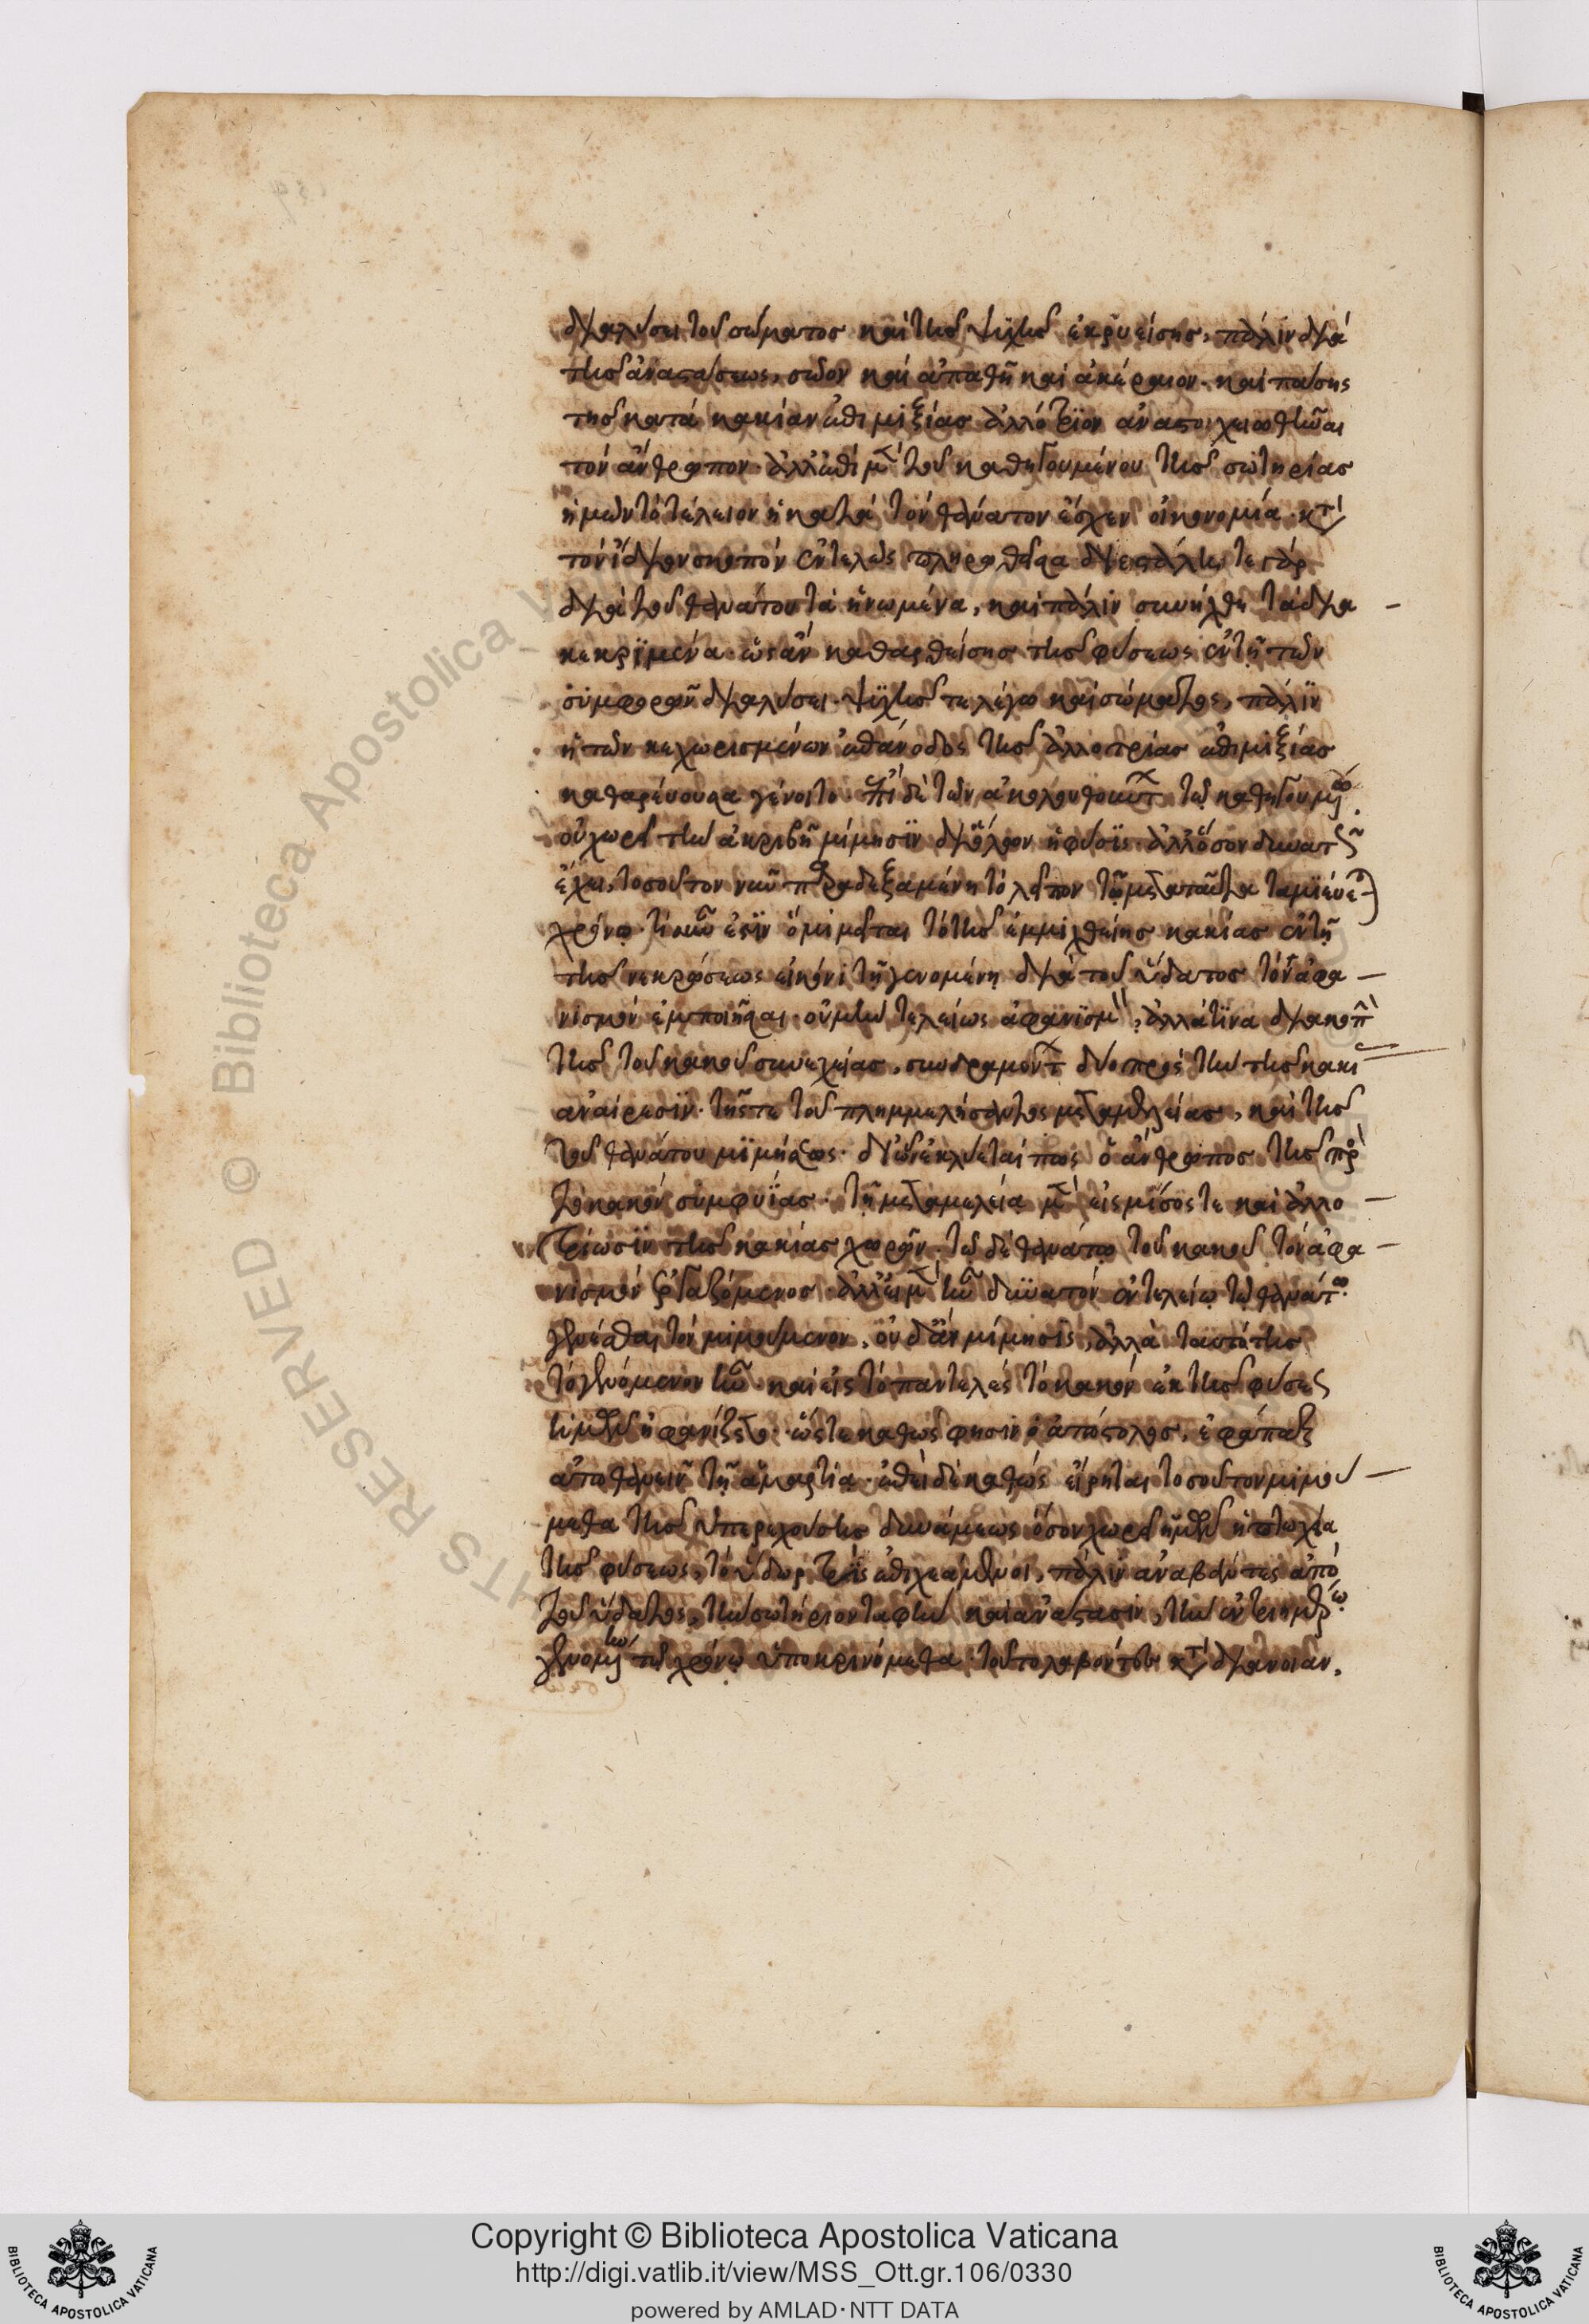 διαλύσει τοῦ σώματος καὶ τῆς ψυχῆς ἐκρυείσης, πάλιν διὰ
τῆς ἀναστάσεως, σῶον καὶ ἀπαθῆ καὶ ἀκέραιον. καὶ πάσης
τῆς κατὰ κακίαν ἐπιμιξίας ἀλλότριον ἀναστοιχειωθῆναι
τὸν ἄνθρωπον. ἀλλ' ἐπὶ μὲν τοῦ καθηγουμένου τῆς σωτηρίας
ἡμῶν τὸ τέλειον ἡ κατὰ τὸν θάνατον ἔσχεν οἰκονομία. κατὰ
τὸν ἴδιον σκοπὸν ἐντελῶς πληρωθεῖσα διεστάλη τε γὰρ
διὰ τοῦ θανάτου τὰ ἡνωμένα, καὶ πάλιν συνήχθη τὰ δια
κεκριμένα. ὡς ἂν καθαρθείσης τῆς φύσεως ἐν τῇ τῶν
συμφυῶν διαλύσει. ψυχῆς τε λέγω καὶ σώματος, πάλιν
ἡ τῶν κεχωρισμένων ἐπάνοδος τῆς ἀλλοτρίας ἐπιμιξίας
καθαρεύουσα γένοιτο. ἐπὶ δὲ τῶν ἀκολουθούντων τῷ καθηγουμένῳ.
οὐ χωρεῖ τὴν ἀκριβῆ μίμησιν δι' ὅλων ἡ φύσις. ἀλλ' ὅσον δυνατῶς
ἔχει, τοσοῦτον νῦν παραδεξαμένη τὸ λεῖπον τῷ μετὰ ταῦτα ταμιεύεται
χρόνῳ. τί οὖν ἐστὶν ὃ μιμεῖται τὸ τῆς ἐμμιχθείσης κακίας ἐν τῇ
τῆς νεκρώσεως εἰκόνι τῇ γενομένῃ διὰ τοῦ ὕδατος τὸν ἀφα
νισμὸν ἐμποιῆσαι. οὐ μὴν τελείως ἀφανισμὸν, ἀλλά τινα διακοπὴν
τῆς τοῦ κακοῦ συνεχείας, συνδραμόντων δύο πρὸς τὴν τῆς κακίας
ἀναίρεσιν. τῆς τε τοῦ πλημμελήσαντος μεταμελείας, καὶ τῆς
τοῦ θανάτου μιμήσεως. δι' ὧν ἐκλύεταί πως ὁ ἄνθρωπος τῆς πρὸς
τὸ κακὸν συμφυΐας. τῇ μεταμελείᾳ μὲν εἰς μῖσός τε καὶ ἀλλο
τρίωσιν τῆς κακίας χωρῶν. τῷ δὲ θανάτῳ τοῦ κακοῦ τὸν ἀφα
νισμὸν ἐργαζόμενος. ἀλλ' εἰ μὲν ἦν δυνατὸν ἐν τελείῳ τῷ θανάτῳ
γενέσθαι τὸν μιμούμενον, οὐδ' ἂν μίμησις, ἀλλὰ ταυτότης
τὸ γενόμενον ἦν. καὶ εἰς τὸ παντελὲς τὸ κακὸν ἐκ τῆς φύσεως
ἡμῶν ἠφανίζετο. ὥστε καθώς φησιν ὁ ἀπόστολος, ἐφάπαξ
ἀποθανεῖν τῇ ἁμαρτίᾳ. ἐπεὶ δὲ καθὼς εἴρηται τοσοῦτον μιμού
μεθα τῆς ὑπερεχούσης δυνάμεως ὅσον χωρεῖ ἡμῶν ἡ πτωχεία
τῆς φύσεως, τὸ ὕδωρ τρὶς ἐπιχεάμενοι, πάλιν ἀναβάντες ἀπὸ
τοῦ ὕδατος, τὴν σωτήριον ταφὴν καὶ ἀνάστασιν, τὴν ἐν τριημέρῳ
γενομένην τῷ χρόνῳ ὑποκρινόμεθα. τοῦτο λαβόντες κατὰ διάνοιαν,
Copyright © Biblioteca Apostolica Vaticana
http://digi.vatlib.it/view/MSS_Ott.gr.106/0330
powered by AMLAD·NTT DATA
BIBLIOTECA APOSTOLICA VATICANA
BIBLIOTECA APOSTOLICA VATICANA